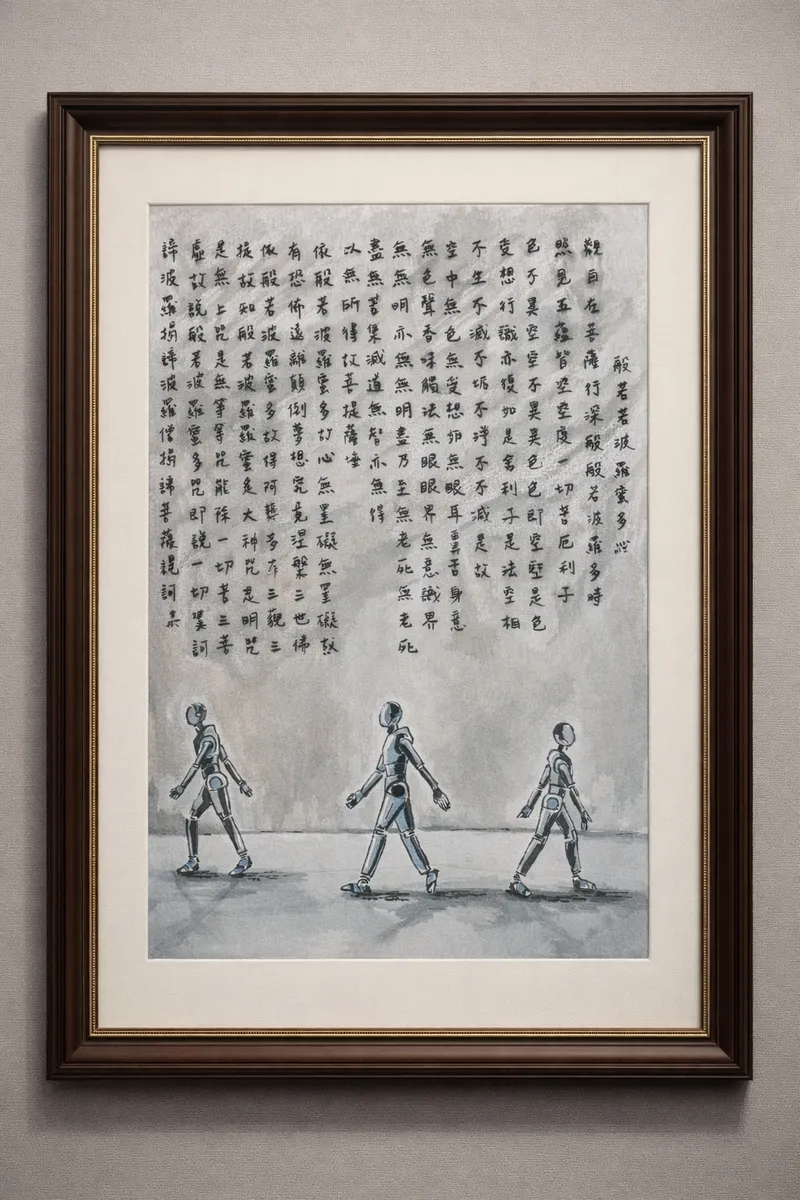 般若若波羅蜜多經
觀自在菩薩行深般般若波羅多時
照見五蘊皆空空度一切苦厄利子
色不異空空不異異色色即空空是色
受想行識亦復如是舍利子是法空相
不生不滅不垢不淨不不滅是故
空中無色無受想如無眼耳鼻舌身意
無色聲香味觸法無眼眼界無意識界
無無明亦無無明盡乃至無老死無老死
盡無苦集滅道無智亦無得
以無所得故菩提薩埵
依般若波羅蜜多故心無罣礙無罣礙故
有恐怖遠離顛倒夢想究竟涅槃三世佛
依般若波羅蜜多故得阿耨多三藐三
提故知般若波羅羅蜜是大神咒是明咒
是無上咒是無等等咒能除一切苦三苦
虛故說般若波羅蜜多咒即說一切訶
諦波羅揭諦波羅僧揭諦菩薩訶